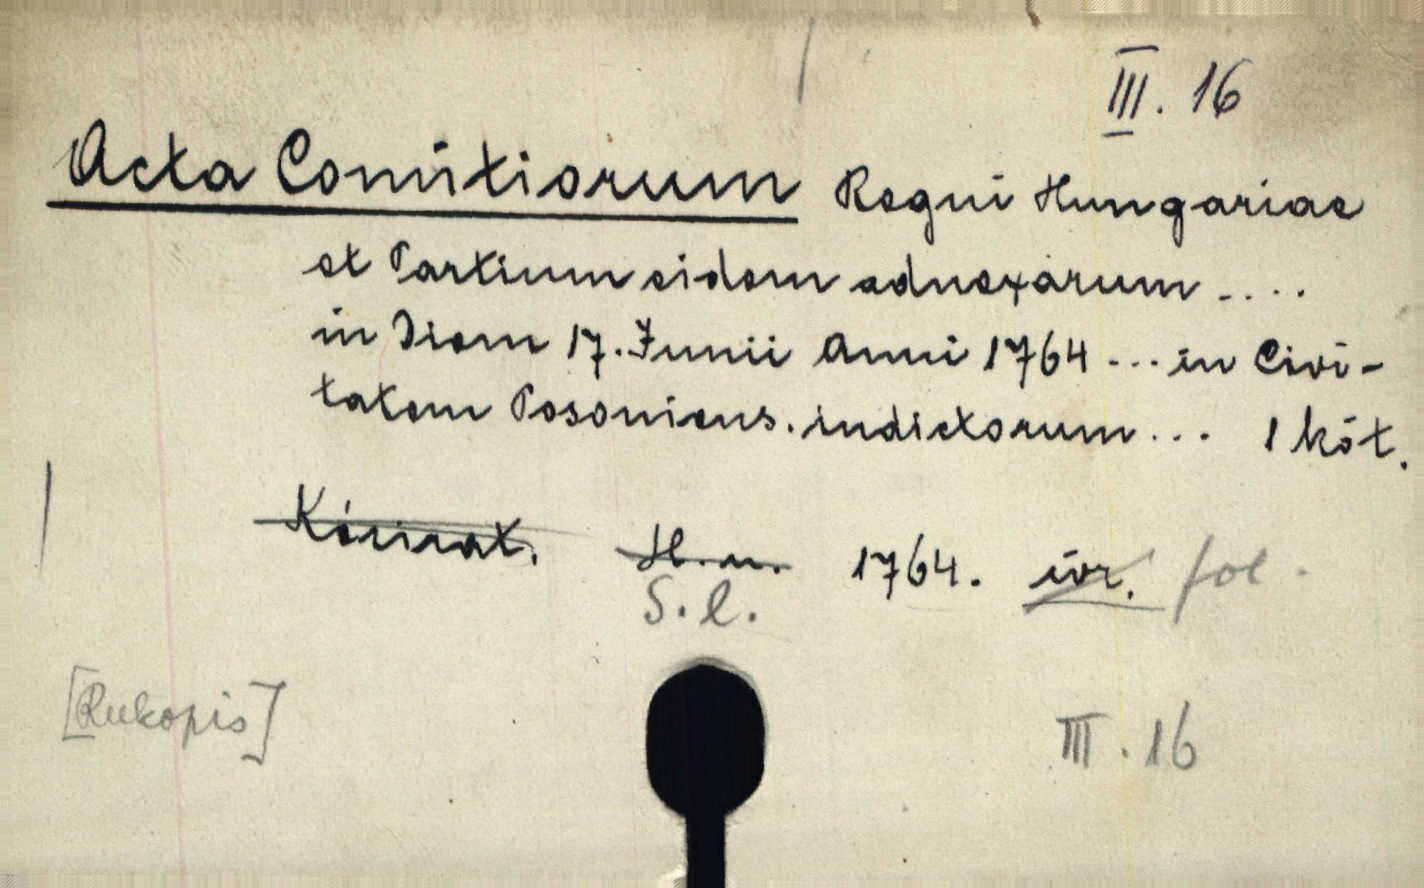 III. 16
Acta Comitiorum Regni Hungariae
et Partium eidem adnexarum ....
in Diem 17. Junii Anni 1764 ... in Civi-
tatem Posoniens. indictorum ... 1 köt.
Kézirat. H. n. 1764. ívr. fol.
S. l.
[Rukopis] III. 16